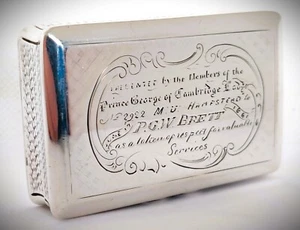 PRESENTED by the Members of the
Prince George of Cambridge
No 2922 M.U. HAMPSTEAD to
P.G.W. BRETT
as a token of respect for valuable
Services